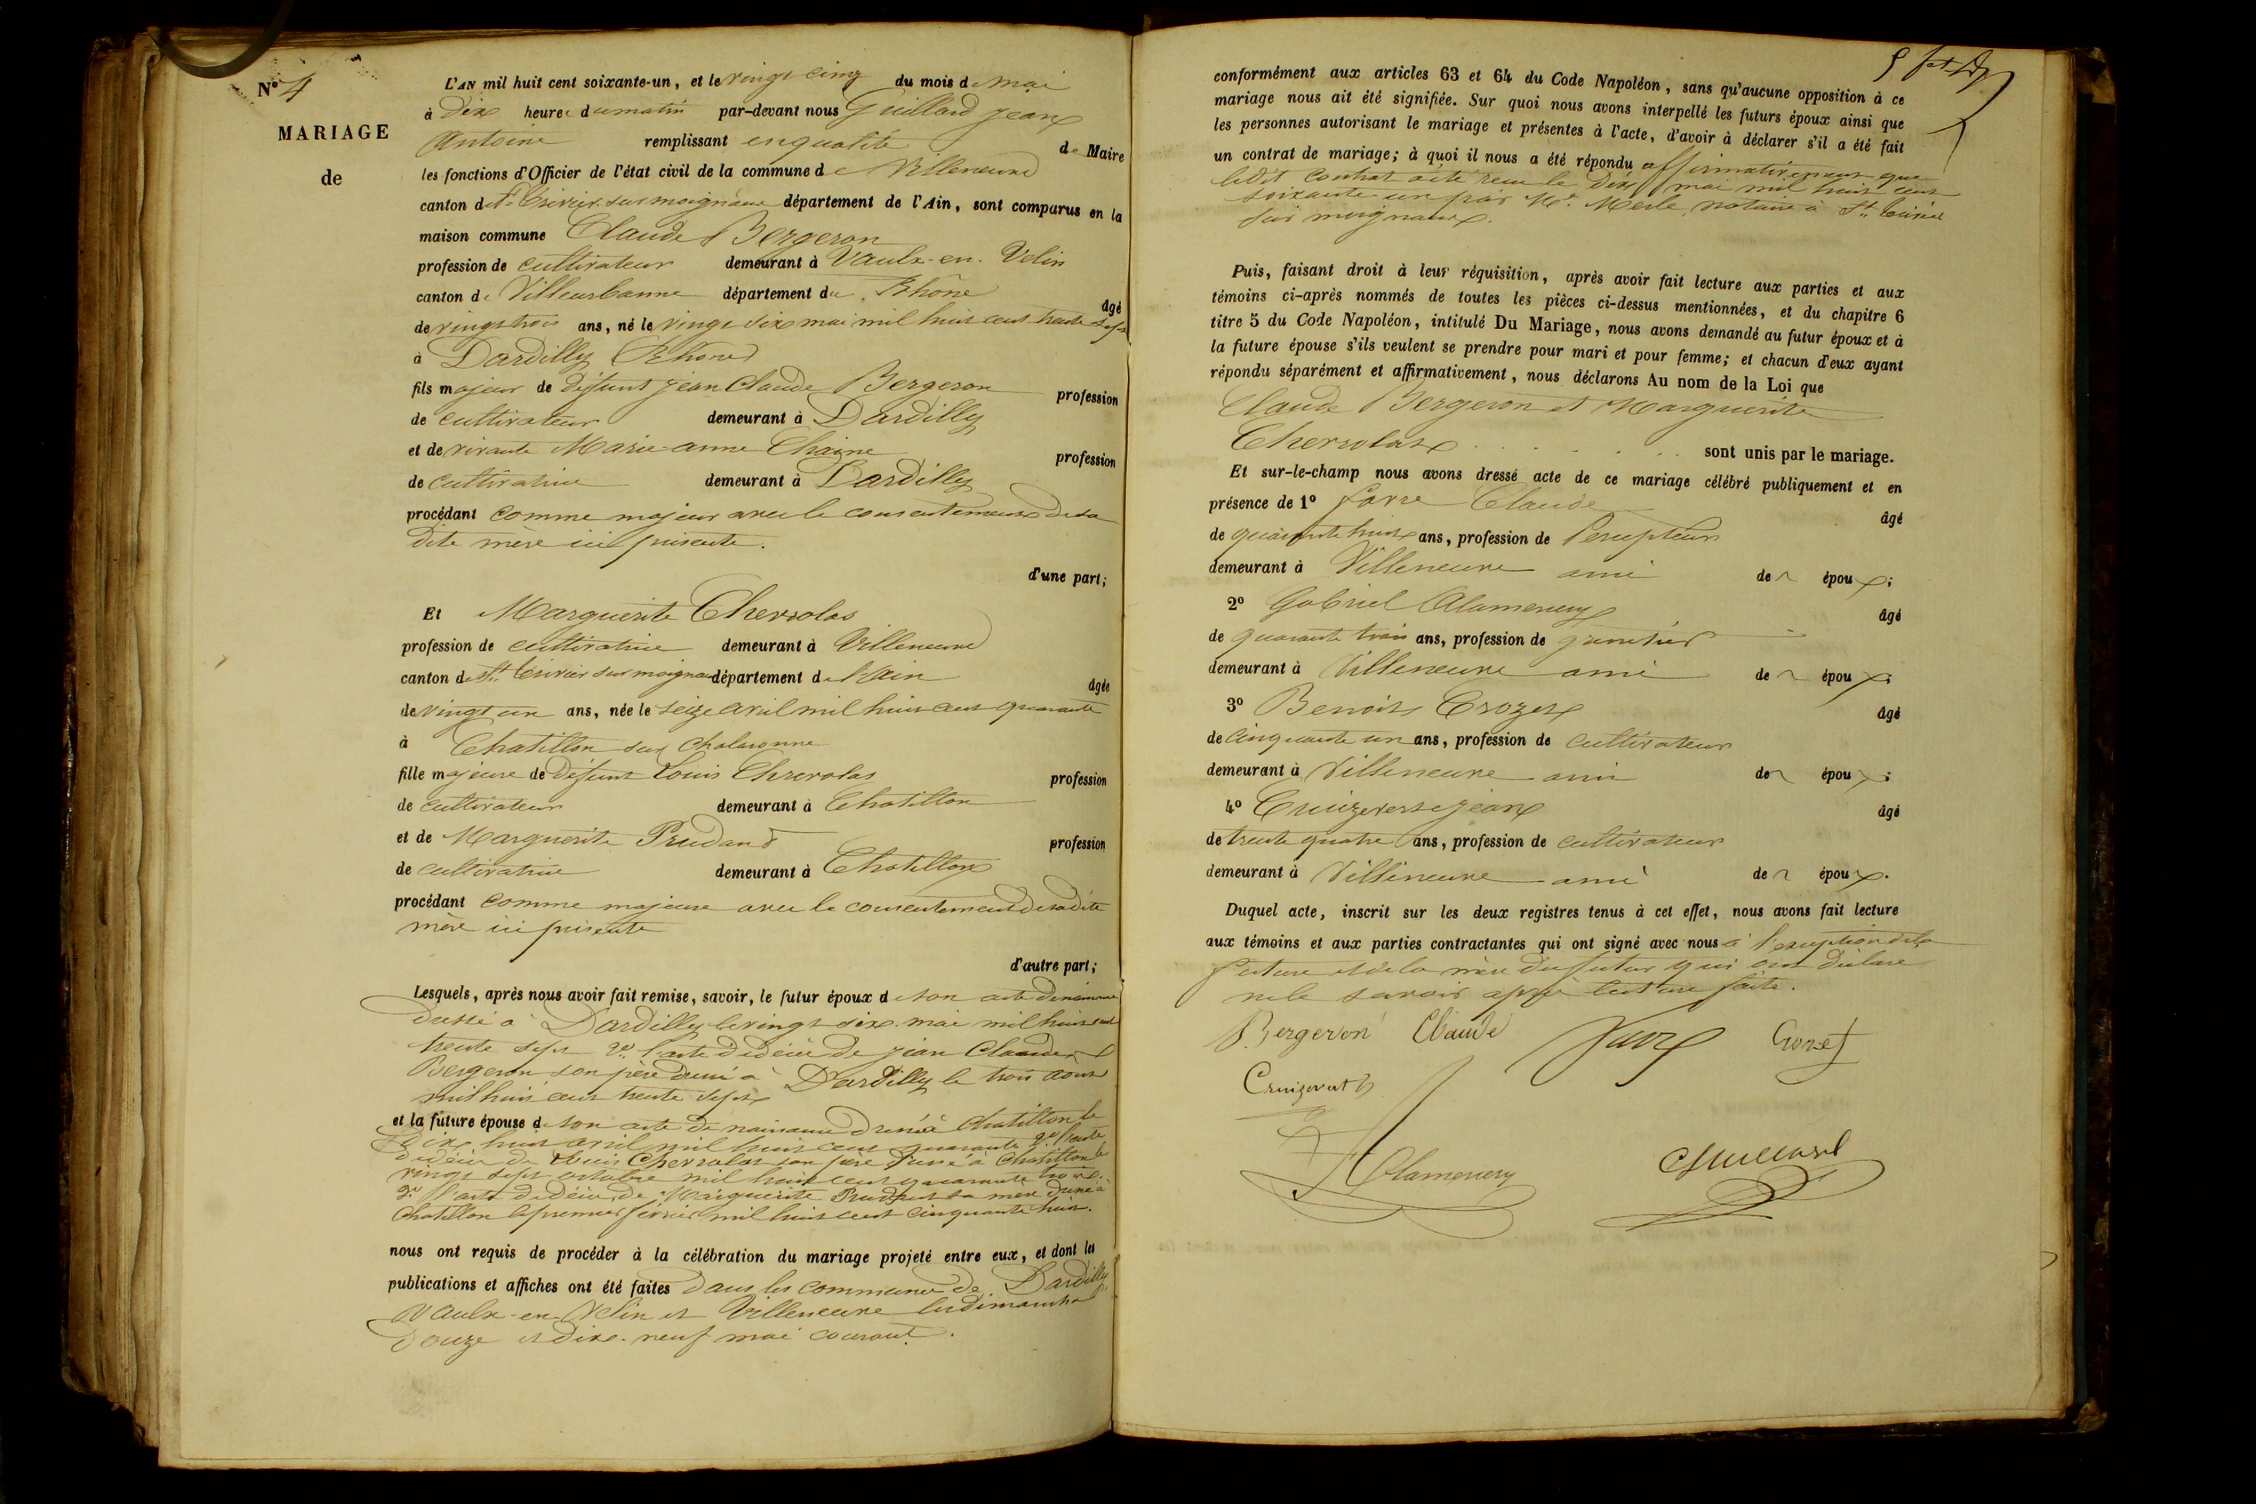 N° 4
MARIAGE
de
L'AN mil huit cent soixante-un, et le vingt cinq du mois de mai
à dix heures du matin par-devant nous Guillard jean
Antoine remplissant en qualité de Maire
les fonctions d'Officier de l'état civil de la commune de Villeneuve
canton de St Trivier sur moignans département de l'Ain, sont comparus en la
maison commune Claude Bergeron
profession de cultivateur demeurant à Vaulx-en-Velin
canton de Villeurbanne département du Rhone âgé
de vingt trois ans, né le vingt six mai mil huit cent trente sept
à Dardilly Rhone
fils majeur de défunt jean Claude Bergeron profession
de cultivateur demeurant à Dardilly
et de vivante Marie-anne Chaine profession
de cultivatrice demeurant à Dardilly
procédant comme majeur avec le consentement de sa
dite mere ici présente.
d'une part;
Et Marguerite Chervolas
profession de cultivatrice demeurant à Villeneuve
canton de St Trivier sur moignans département de l'Ain âgée
de vingt un ans, née le seize avril mil huit cent quarante
à Chatillon sur Chalaronne
fille majeure de défunt Louis Chervolas profession
de cultivateur demeurant à Chatillon
et de Marguerite Prudand profession
de cultivatrice demeurant à Chatillon
procédant comme majeure avec le consentement de sa dite
mère ici présente
d'autre part;
Lesquels, après nous avoir fait remise, savoir, le futur époux de son acte de naissance
dressé à Dardilly le vingt six mai mil huit cent
trente sept 2° l'acte de décès de jean Claude
Bergeron son père dressé à Dardilly le trois aout
mil huit cent trente sept
et la future épouse de son acte de naissance dressé à Chatillon le
dix huit avril mil huit cent quarante 2° l'acte
de décès de Louis Chervolas son père dressé à Chatillon le
vingt sept octobre mil huit cent quarante trois.
3° l'acte de décès de Marguerite Prudent sa mere dressé à
Chatillon le premier février mil huit cent cinquante huit.
nous ont requis de procéder à la célébration du mariage projeté entre eux, et dont les
publications et affiches ont été faites dans les communes de Dardilly
Vaulx-en-Velin et Villeneuve les dimanches
douze et dix-neuf mai courant.
conformément aux articles 63 et 64 du Code Napoléon, sans qu'aucune opposition à ce
mariage nous ait été signifiée. Sur quoi nous avons interpellé les futurs époux ainsi que
les personnes autorisant le mariage et présentes à l'acte, d'avoir à déclarer s'il a été fait
un contrat de mariage; à quoi il nous a été répondu affirmativement que
ledit contrat a été reçu le dix mai mil huit cent
soixante un par Me. Merle, notaire à St Trivier
sur moignans.
Puis, faisant droit à leur réquisition, après avoir fait lecture aux parties et aux
témoins ci-après nommés de toutes les pièces ci-dessus mentionnées, et du chapitre 6
titre 5 du Code Napoléon, intitulé Du Mariage, nous avons demandé au futur époux et à
la future épouse s'ils veulent se prendre pour mari et pour femme; et chacun d'eux ayant
répondu séparément et affirmativement, nous déclarons Au nom de la Loi que
Claude Bergeron et Marguerite
Chervolas sont unis par le mariage.
Et sur-le-champ nous avons dressé acte de ce mariage célébré publiquement et en
présence de 1° Favre Claude âgé
de quarante huit ans, profession de Percepteur
demeurant à Villeneuve ami des époux;
2° Gabriel Alamercery âgé
de quarante trois ans, profession de
demeurant à Villeneuve ami des époux;
3° Benoit Crozet âgé
de cinquante un ans, profession de cultivateur
demeurant à Villeneuve ami des époux;
4° jean âgé
de trente quatre ans, profession de cultivateur
demeurant à Villeneuve ami des époux.
Duquel acte, inscrit sur les deux registres tenus à cet effet, nous avons fait lecture
aux témoins et aux parties contractantes qui ont signé avec nous à l'exception de la
future et de la mère du futur qui ont déclaré
ne le savoir après lecture faite.
Bergeron Claude Favre Crozet
Alamercery Guillard